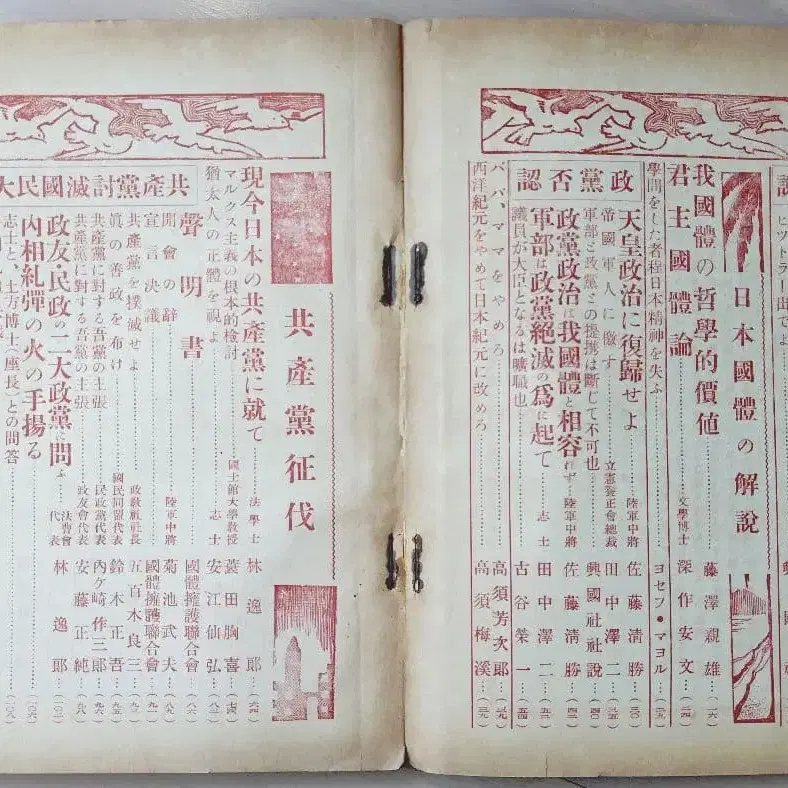 ヒットラー出でよ
日本國體の解説
我國體の哲學的價値……藤澤親雄…(一六)
君主國體論……文學博士 深作安文…(二四)
學問をした者程日本精神を失ふ……ヨセフ・マヨル…(二九)
政黨否認
天皇政治に復歸せよ……陸軍中將 佐藤清勝…(三〇)
帝國軍人に檄す……立憲養正會總裁 田中澤二…(三五)
軍部と政黨との提携は斷じて不可也……興國社社説…(四〇)
政黨政治は我國體と相容れず 陸軍中將 佐藤清勝
軍部は政黨絶滅の爲に起て……志士 田中澤二…(五三)
議員が大臣となるは瀆職也……古谷榮一…(五四)
パパ、ママをやめろ……高須芳次郎…(三九)
西洋紀元をやめて日本紀元に改めろ……高須梅溪…(三九)
共產黨征伐
現今日本の共產黨に就て……法學士 林逸郎…(六四)
マルクス主義の根本的檢討……國士館大學教授 蓑田胸喜…(七四)
猶太人の正體を視よ……志士 安江仙弘…(八二)
共產黨討滅國民大
聲明書……國體擁護聯合會…(八六)
開會の辭……陸軍中將 菊池武夫…(八九)
宣言決議……國體擁護聯合會…(九一)
共產黨を撲滅せよ……政教社社長 五百木良三
眞の善政を布け……國民同盟代表 鈴木正吾…(九五)
共產黨に對する吾黨の主張……民政黨代表 內ケ崎作三郎…(九六)
共產黨に對する吾黨の主張……政友會代表 安藤正純…(九八)
政友・民政の二大政黨に問ふ 代表 林逸郎
內相糺彈の火の手揚る……(一〇六)
志士と土方博士(座長)との問答……(一〇八)